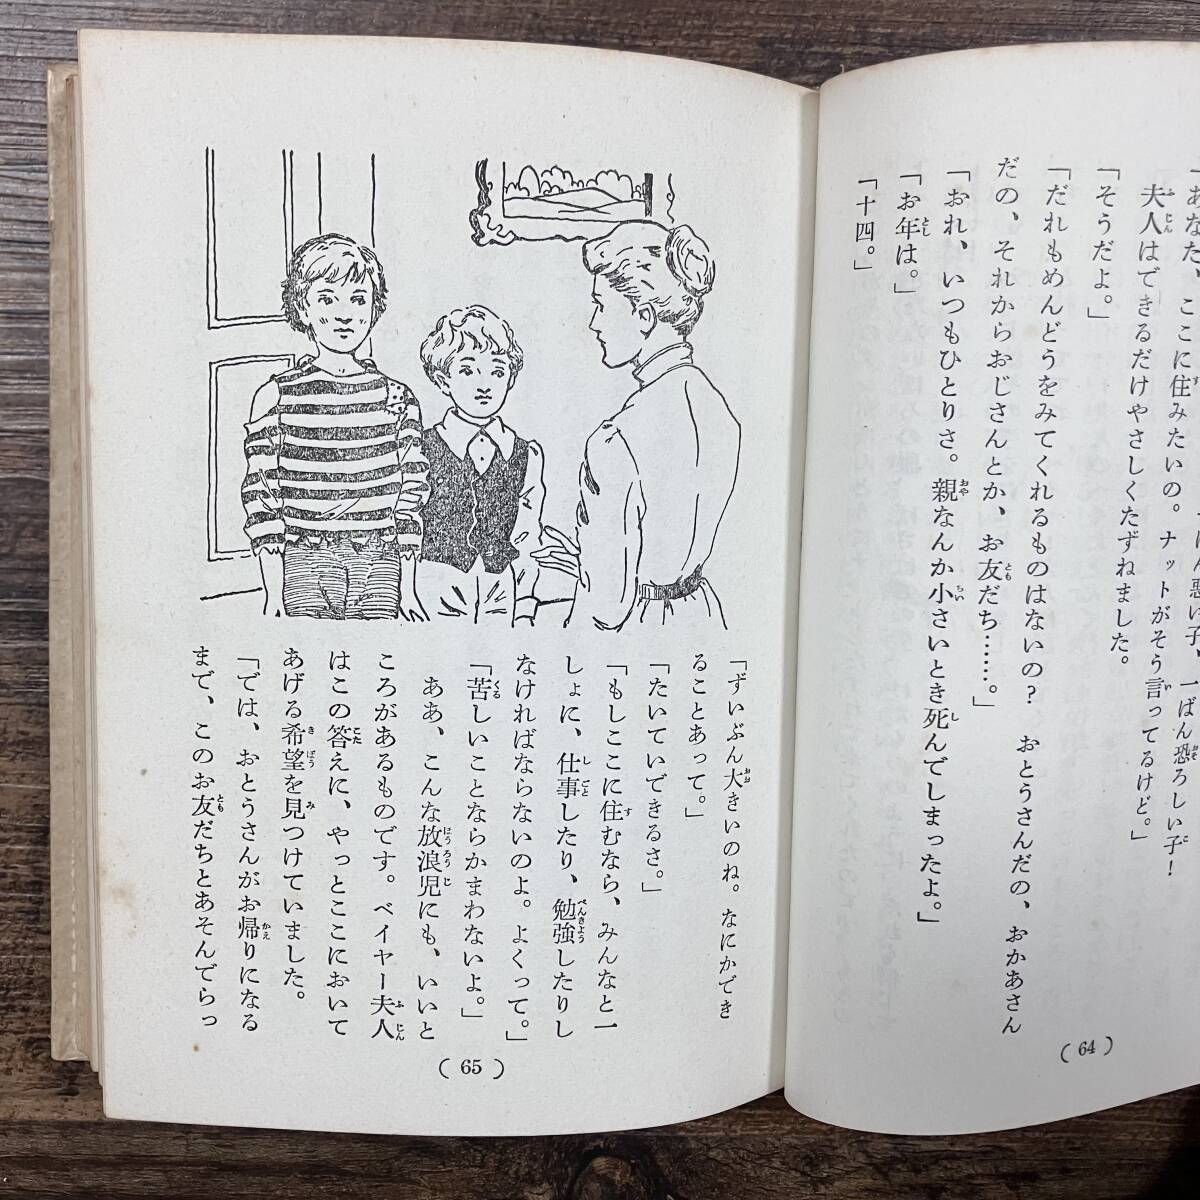 ばん悪い子、一ばん恐ろしい子！
「あなた、ここに住みたいの。ナットがそう言ってるけど。」
夫人はできるだけやさしくたずねました。
「そうだよ。」
「だれもめんどうをみてくれるものはないの？　おとうさんだの、おかあさん
だの、それからおじさんとか、お友だち……。」
「おれ、いつもひとりさ。親なんか小さいとき死んでしまったよ。」
「お年は。」
「十四。」
（64）
「ずいぶん大きいのね。なにかでき
ることあって。」
「たいていできるさ。」
「もしここに住むなら、みんなと一
しょに、仕事したり、勉強したりし
なければならないのよ。よくって。」
「苦しいことならかまわないよ。」
ああ、こんな放浪児にも、いいと
ころがあるものです。ベイヤー夫人
はこの答えに、やっとここにおいて
あげる希望を見つけていました。
「では、おとうさんがお帰りになる
まで、このお友だちとあそんでらっ
（65）